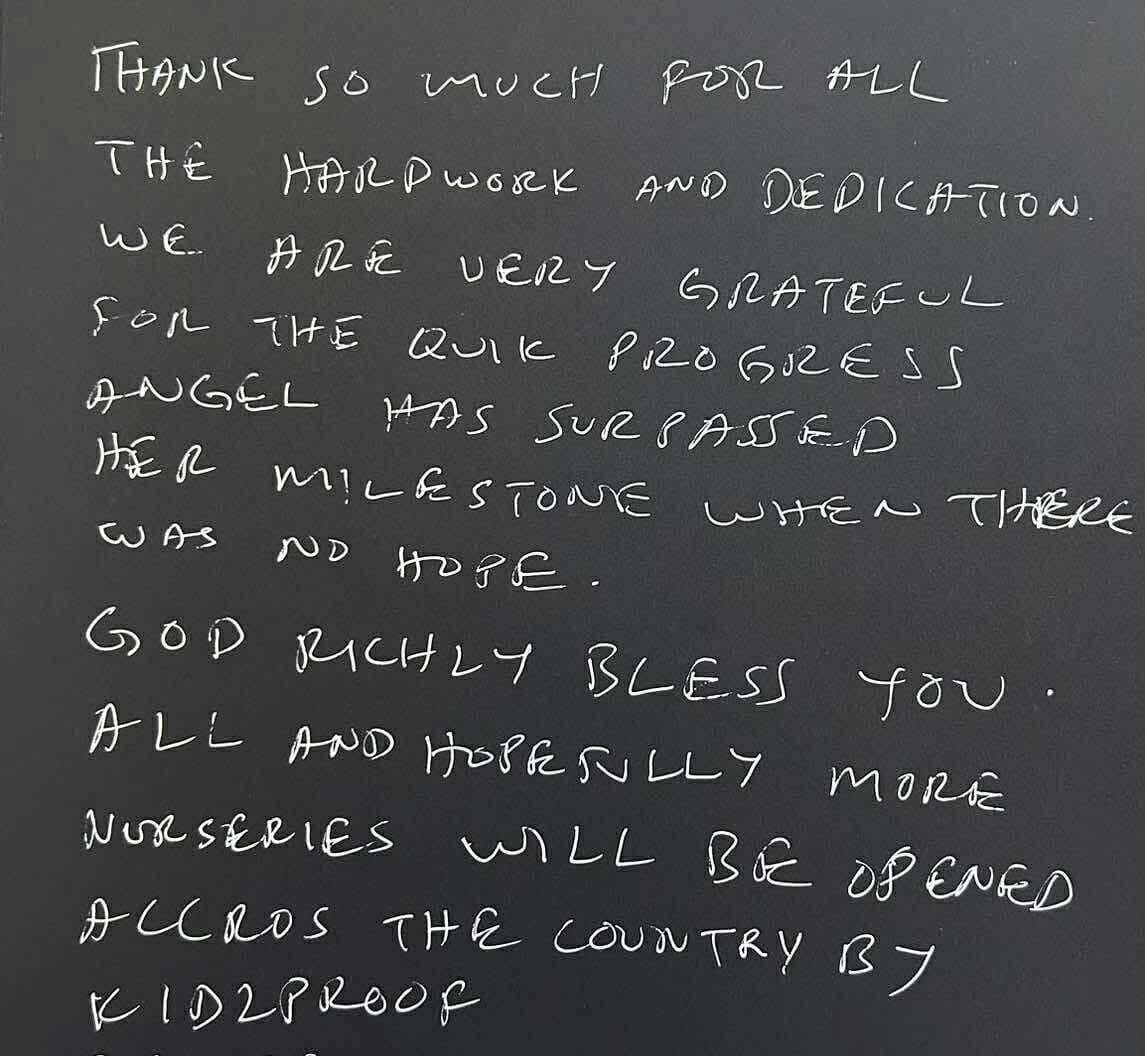 THANK SO MUCH FOR ALL
THE HARDWORK AND DEDICATION.
WE ARE VERY GRATEFUL
FOR THE QUIK PROGRESS
ANGEL HAS SURPASSED
HER MILESTONE WHEN THERE
WAS NO HOPE.
GOD RICHLY BLESS YOU.
ALL AND HOPEFULLY MORE
NURSERIES WILL BE OPENED
ACCROS THE COUNTRY BY
KID2PROOF